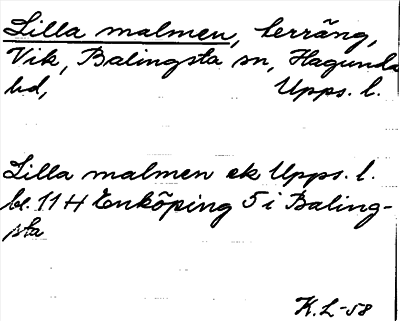 Lilla malmen, terräng,
Vik, Balingsta sn, Hagunda
hd, Upps. l.
Lilla malmen ek Upps. l.
bl. 11 H Enköping 5 i Baling-
sta
K.L-58